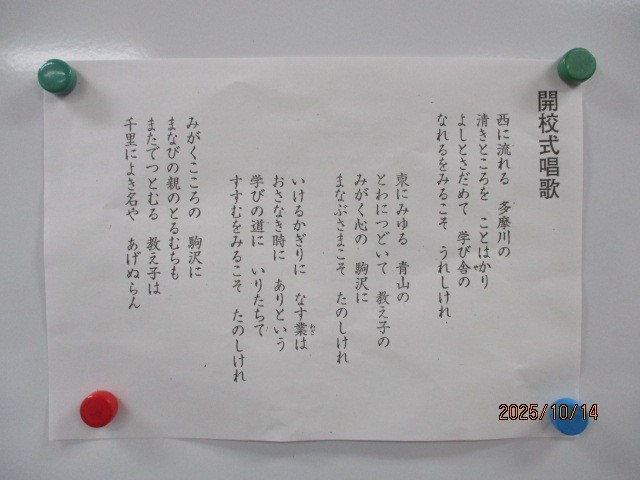 開校式唱歌
西に流れる　多摩川の
清きところを　ことはかり
よしとさだめて　学び舎の
なれるをみるこそ　うれしけれ
東にみゆる　青山の
とわにつどいて　教え子の
みがく心の　駒沢に
まなぶさまこそ　たのしけれ
いけるかぎりに　なす業は
わざ
おさなき時に　ありという
学びの道に　いりたちて
すすむをみるこそ　たのしけれ
みがくこころの　駒沢に
まなびの親のとるむちも
またでつとむる　教え子は
千里によき名や　あげぬらん
2025/10/14